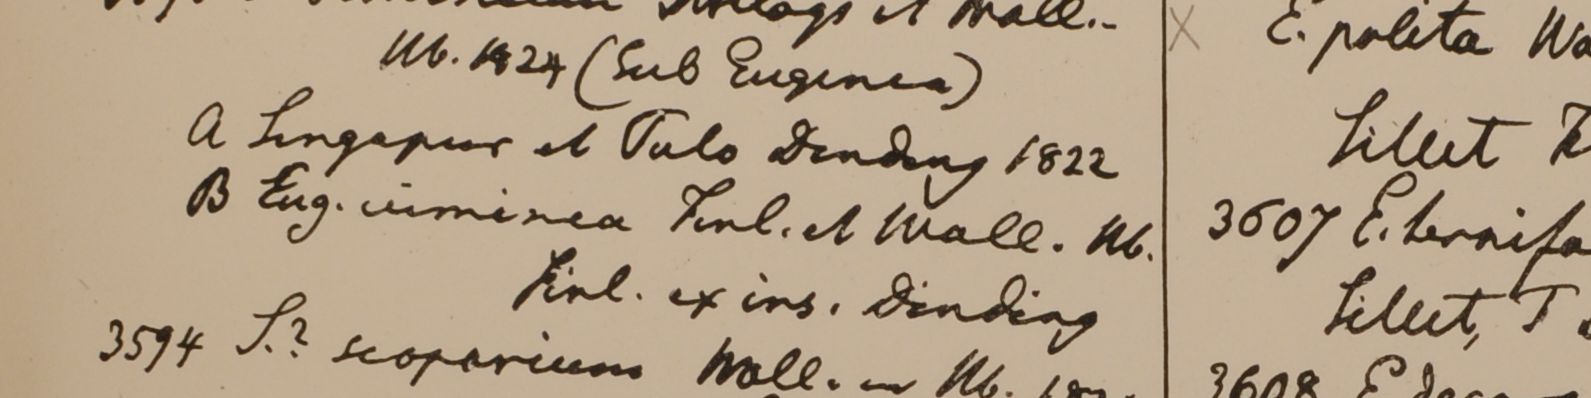 et Wall.
Hb. 1824 (Sub Eugenia)
A Singapur et Pulo Dinding 1822
B Eug. viminea Finl. et Wall. Hb.
Finl. ex ins. Dinding
3594 S.? scoparium Wall. in Hb.
X E. polita
Sillet
3607 E.
Sillet, T
3608 E